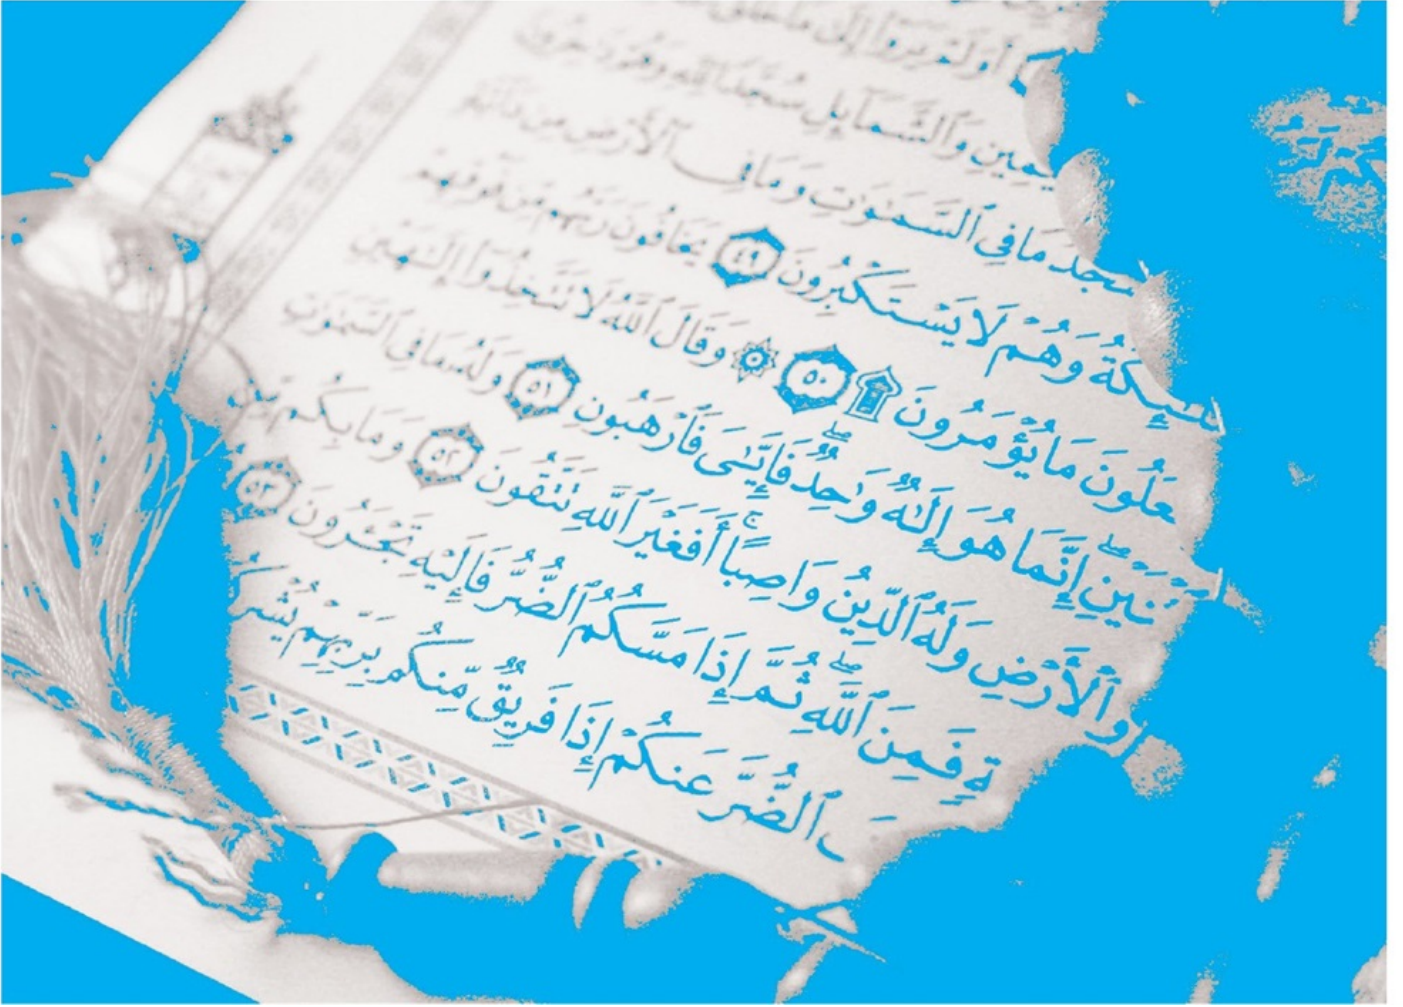 أَوَلَمْ يَرَوْا۟ إِلَىٰ مَا خَلَقَ
يَمِينِ وَٱلشَّمَآئِلِ سُجَّدًا لِّلَّهِ وَهُمْ دَٰخِرُونَ
سْجُدُ مَا فِى ٱلسَّمَٰوَٰتِ وَمَا فِى ٱلْأَرْضِ مِن دَآبَّةٍ
ـٰٓئِكَةُ وَهُمْ لَا يَسْتَكْبِرُونَ ٤٩ يَخَافُونَ رَبَّهُم مِّن فَوْقِهِمْ
ـعَلُونَ مَا يُؤْمَرُونَ ۩ ٥٠ ۞ وَقَالَ ٱللَّهُ لَا تَتَّخِذُوٓا۟ إِلَٰهَيْنِ
ـنَيْنِ ۖ إِنَّمَا هُوَ إِلَٰهٌ وَٰحِدٌ ۖ فَإِيَّٰىَ فَٱرْهَبُونِ ٥١ وَلَهُۥ مَا فِى ٱلسَّمَٰوَٰتِ
وَٱلْأَرْضِ وَلَهُ ٱلدِّينُ وَاصِبًا ۚ أَفَغَيْرَ ٱللَّهِ تَتَّقُونَ ٥٢ وَمَا بِكُم مِّن
ـةٍ فَمِنَ ٱللَّهِ ۖ ثُمَّ إِذَا مَسَّكُمُ ٱلضُّرُّ فَإِلَيْهِ تَجْـَٔرُونَ ٥٣
ٱلضُّرَّ عَنكُمْ إِذَا فَرِيقٌ مِّنكُم بِرَبِّهِمْ يُشْرِكُـ